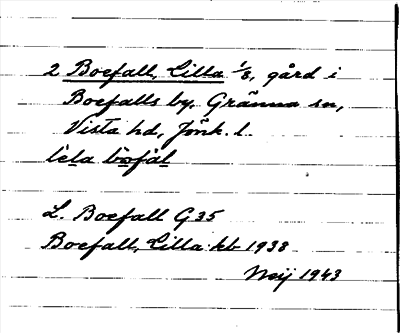 2 Boefall, Lilla 1/8, gård i
Boefalls by, Gränna sn,
Vista hd, Jönk. l.
L. Boefall G35
Boefall, Lilla kb 1938
Meij 1943